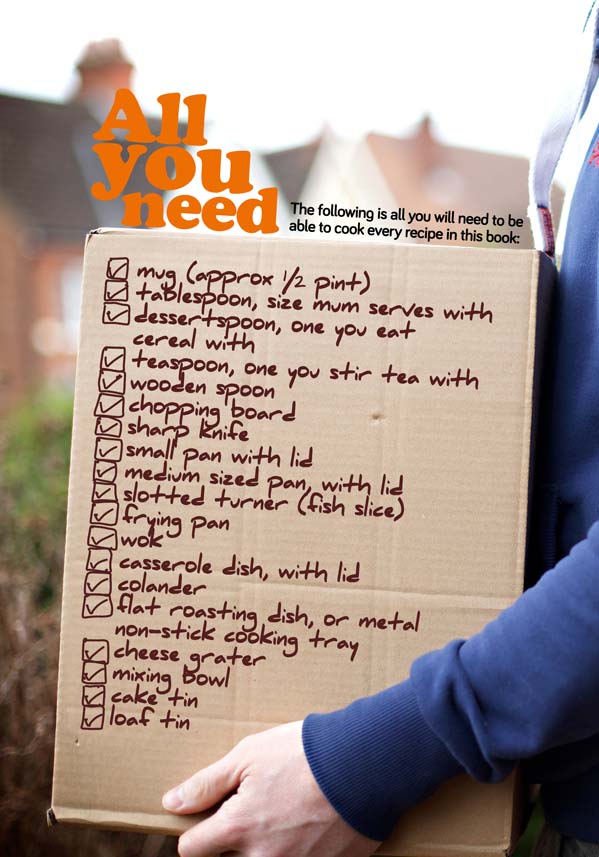 All
you
need
The following is all you will need to be
able to cook every recipe in this book:
mug (approx 1/2 pint)
tablespoon, size mum serves with
dessertspoon, one you eat
cereal with
teaspoon, one you stir tea with
wooden spoon
chopping board
sharp knife
small pan with lid
medium sized pan, with lid
slotted turner (fish slice)
frying pan
wok
casserole dish, with lid
colander
flat roasting dish, or metal
non-stick cooking tray
cheese grater
mixing bowl
cake tin
loaf tin